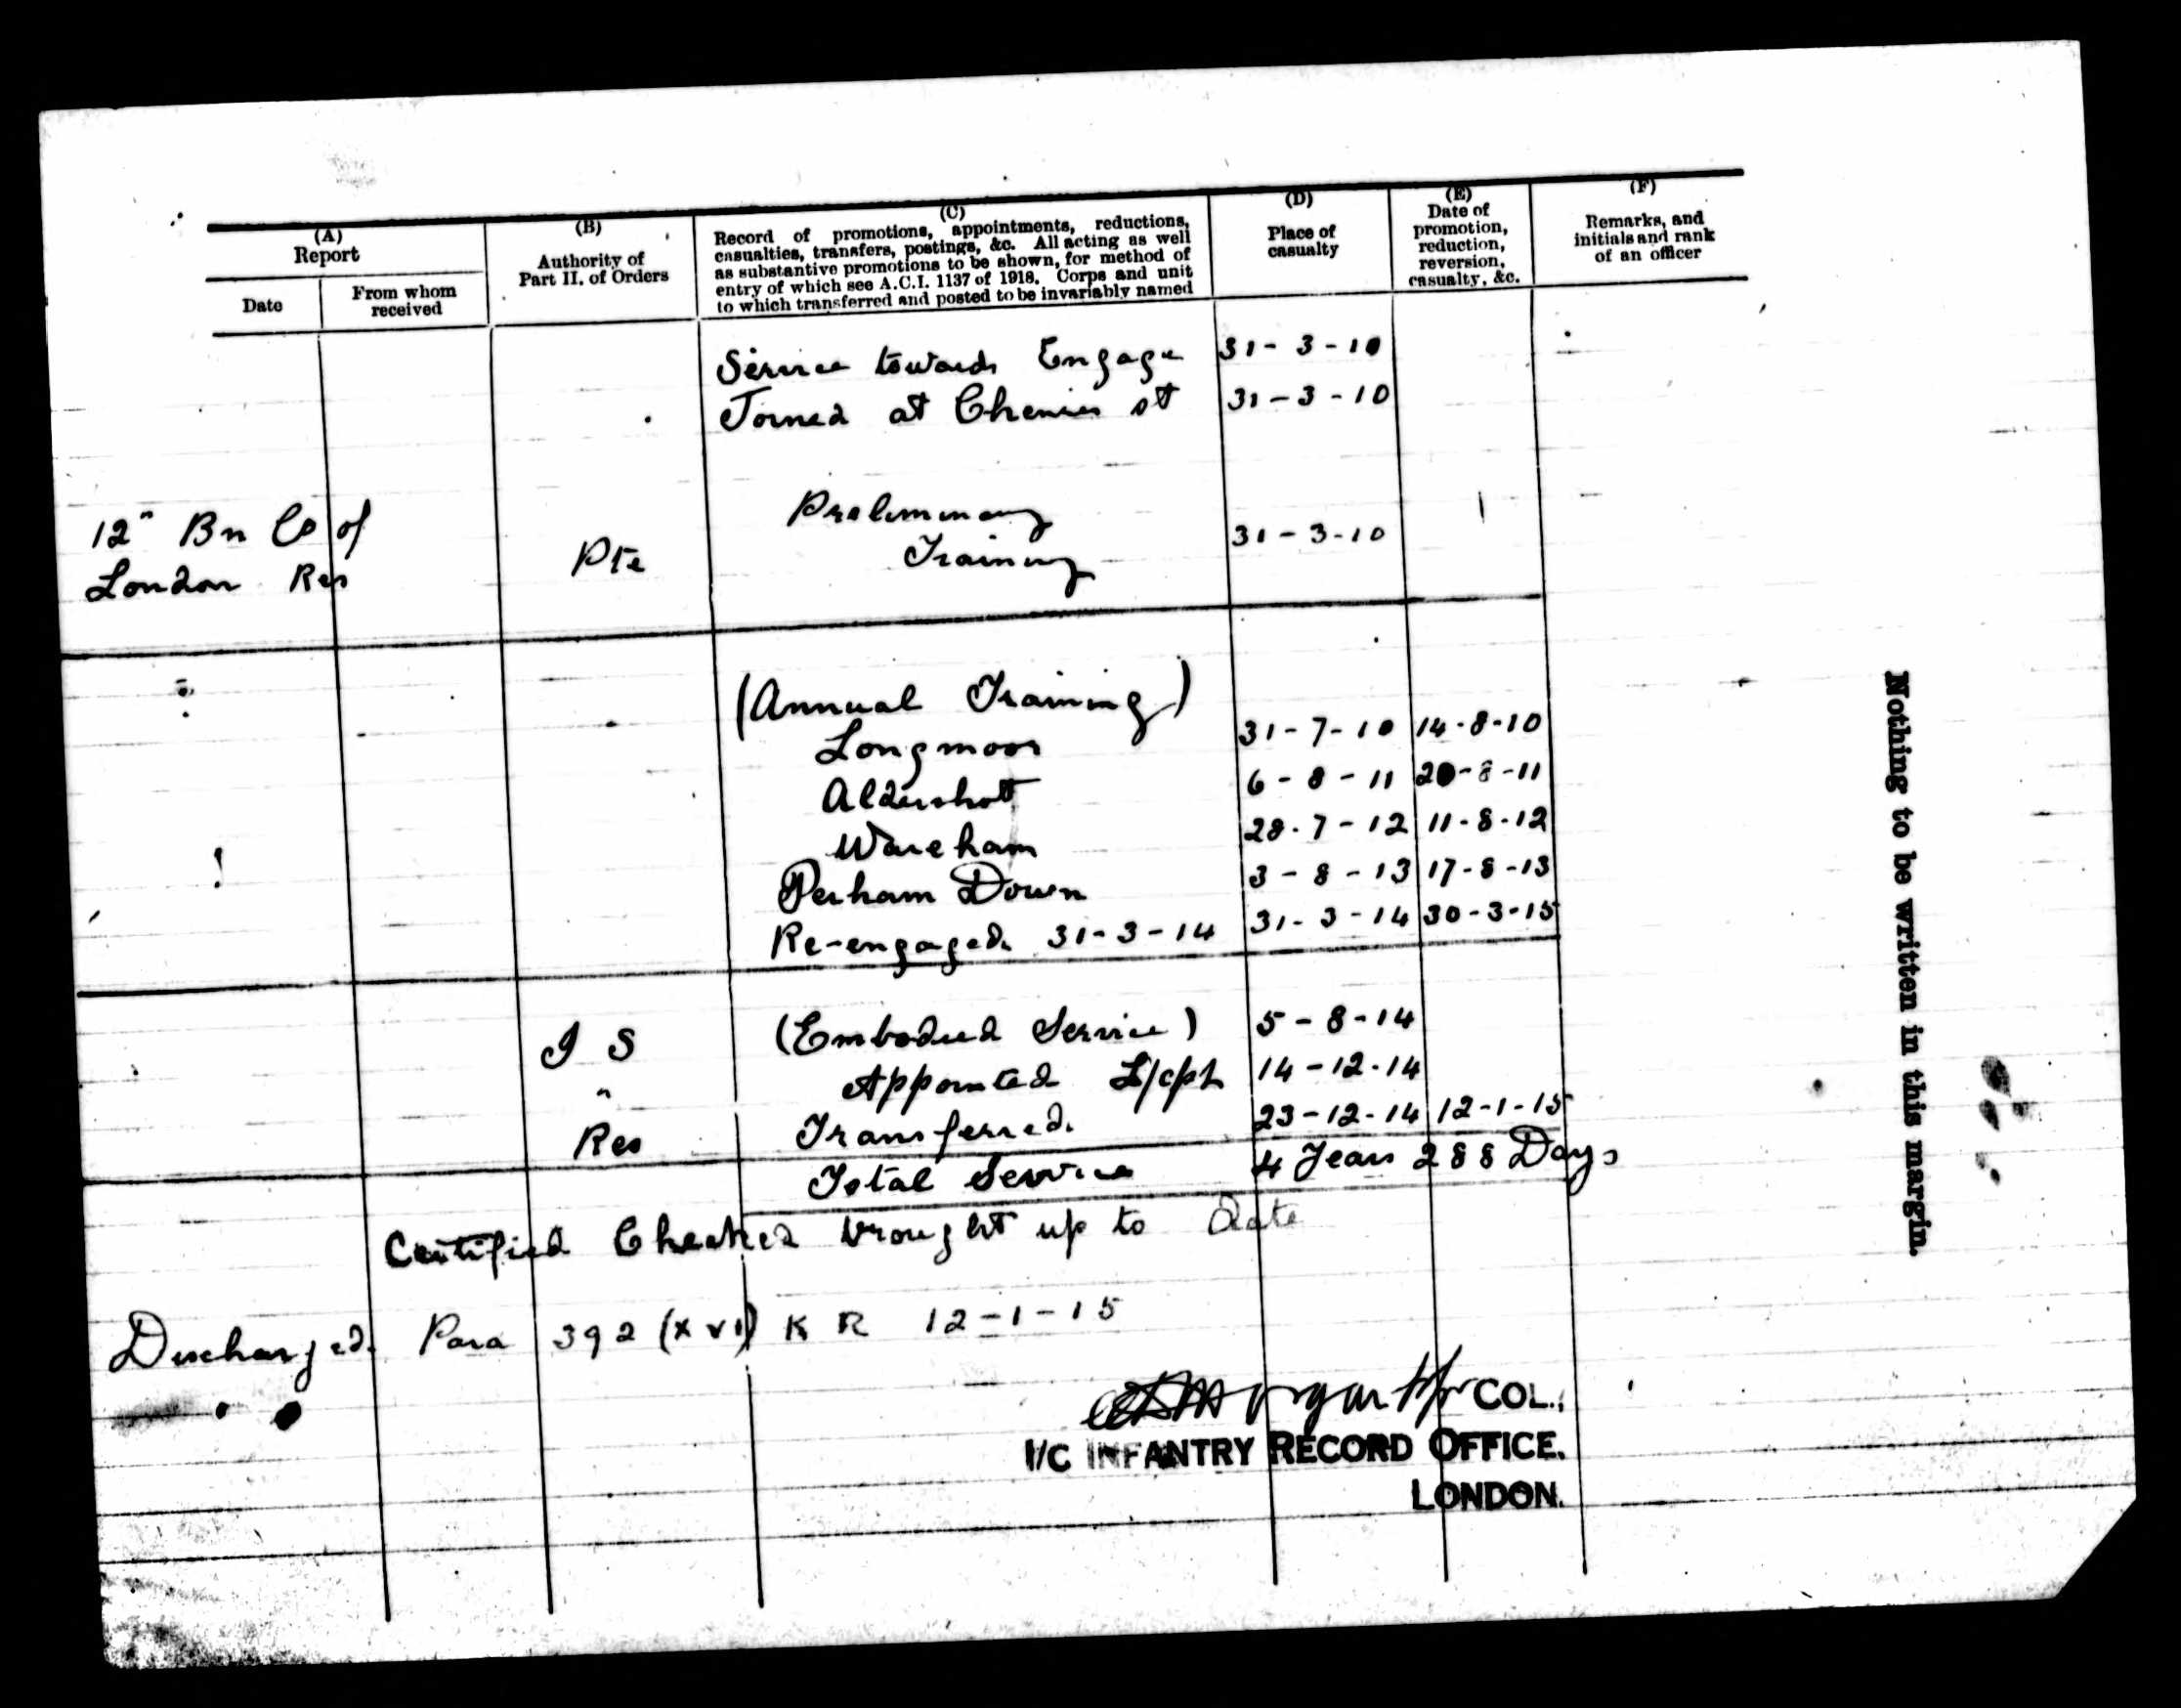 (A)
Report
Date
From whom
received
(B)
Authority of
Part II. of Orders
(C)
Record of promotions, appointments, reductions,
casualties, transfers, postings, &c. All acting as well
as substantive promotions to be shown, for method of
entry of which see A.C.I. 1137 of 1918. Corps and unit
to which transferred and posted to be invariably named
(D)
Place of
casualty
(E)
Date of
promotion,
reduction,
reversion,
casualty, &c.
(F)
Remarks, and
initials and rank
of an officer
Service towards Engage 31-3-10
Joined at Chenies st 31-3-10
12" Bn Co of
London Res
Pte
Preliminary
Training 31-3-10
(Annual Training)
Longmoor 31-7-10 14-8-10
Aldershott 6-8-11 20-8-11
Wareham 28-7-12 11-8-12
Perham Down 3-8-13 17-8-13
Re-engaged. 31-3-14 31-3-14 30-3-15
I S (Embodied Service) 5-8-14
" Appointed L/cpl 14-12-14
Res Transferred. 23-12-14 12-1-15
Total Service 4 Years 288 Days
Certified Checked brought up to Date
Discharged. Para 392 (xvi) K R 12-1-15
COL.,
I/C INFANTRY RECORD OFFICE.
LONDON.
Nothing to be written in this margin.